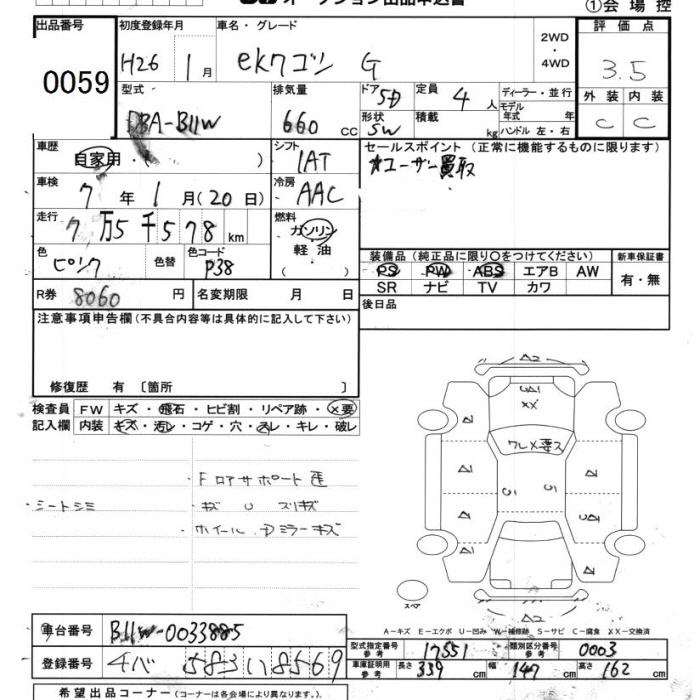 ①会場控
出品番号 初度登録年月 車名・グレード 2WD・4WD 評価点
0059 H26 1月 ekワゴン G 3.5
型式 排気量 ドア 5D 定員 4人 ディーラー・並行 外装 内装
DBA-B11W 660cc 形状 SW 積載 kg モデル年式 年 C C
ハンドル 左・右
車歴 自家用・( ) シフト IAT セールスポイント(正常に機能するものに限ります)
車検 7年1月(20日) 冷房 AAC ★ユーザー買取
走行 7万5千578km 燃料 ガソリン 軽油 ( )
色 ピンク 色替 色コード P38
装備品(純正品に限り○をつけてください) 新車保証書
PS PW ABS エアB AW 有・無
SR ナビ TV カワ
R券 8060円 名変期限 月 日 後日品
注意事項申告欄(不具合内容等は具体的に記入して下さい)
修復歴 有〔箇所 〕
検査員 FW キズ・飛石・ヒビ割・リペア跡・×要
記入欄 内装 キズ・汚レ・コゲ・穴・スレ・キレ・破レ
・Fロアサポート歪
・シートシミ ・キズ U スリキズ
ホイール
ミラーキズ
A2
XX
A2
A1
A2
A2
スペア
A-キズ E-エクボ U-凹み W-補修跡 S-サビ C-腐食 XX-交換済
車台番号 B11W-0033885 型式指定番号 参考 17551 類別区分番号 参考 0003
登録番号 車庫証明用 参考 長さ 339cm 幅 147cm 高さ 162cm
希望出品コーナー(コーナーは各会場により異なります。)